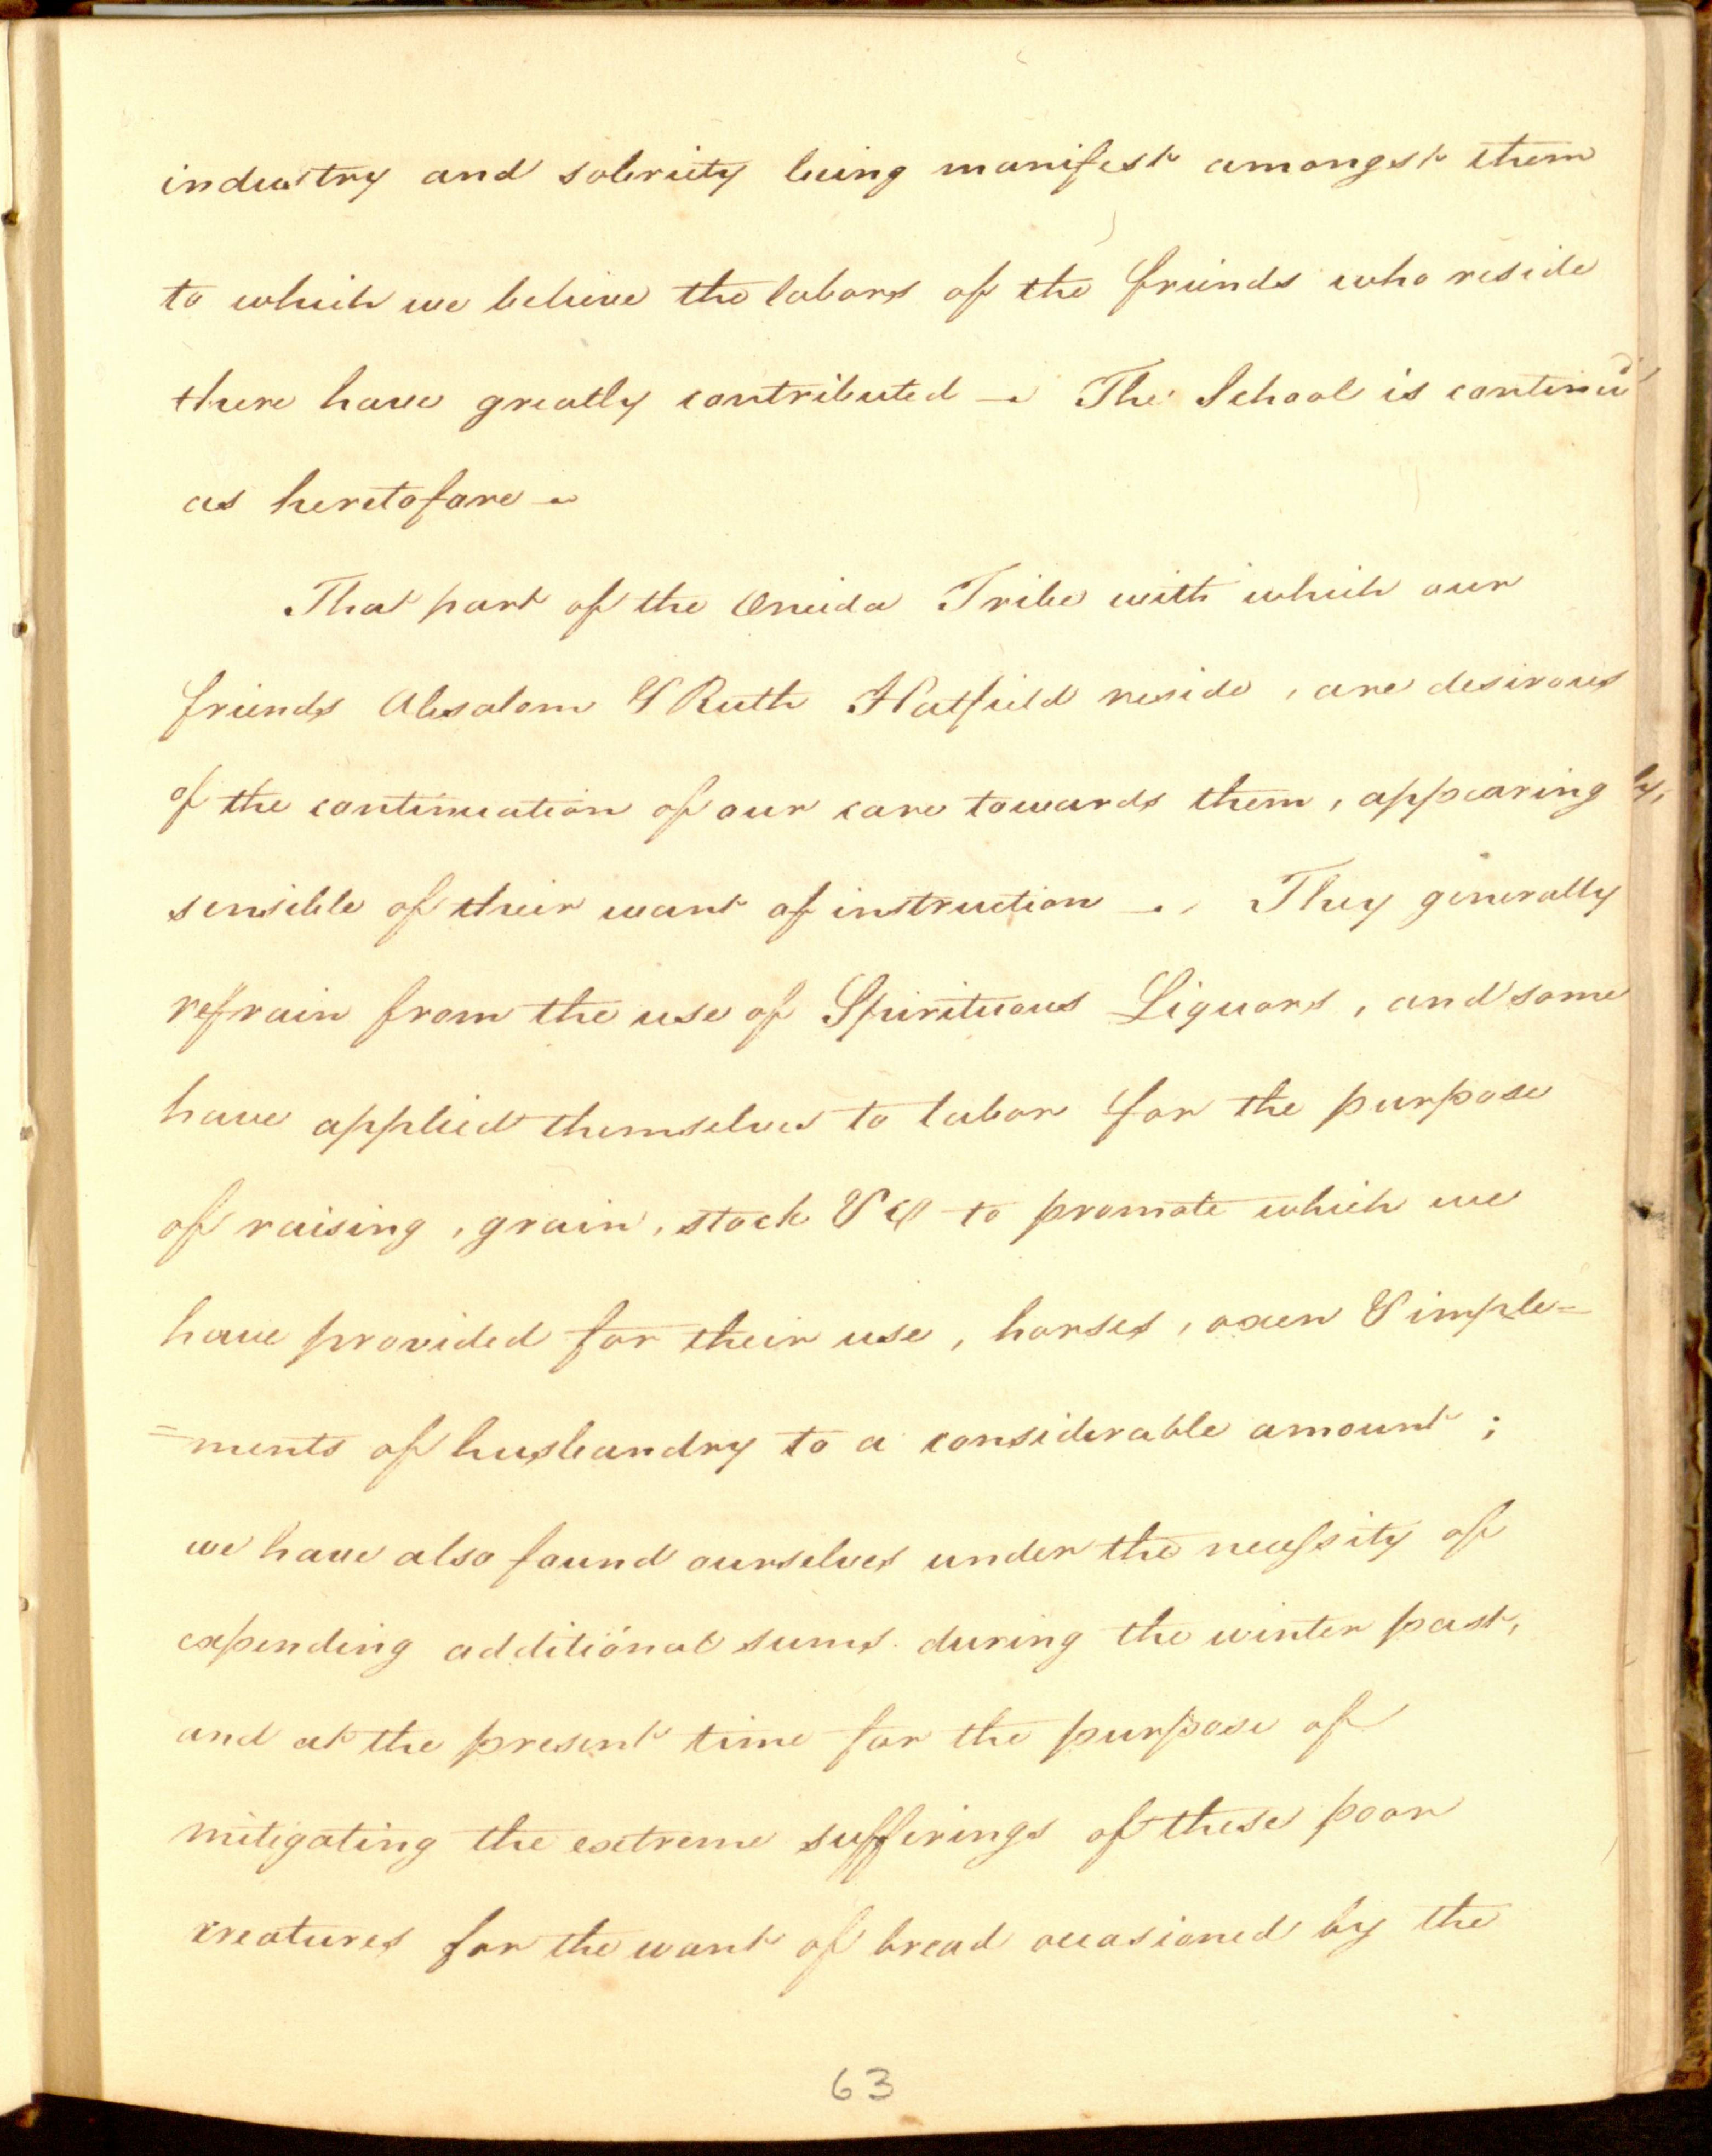 industry and sobriety being manifest amongst them
to which we believe the labors of the friends who reside
there have greatly contributed — The School is continu'd
as heretofore —
That part of the Oneida Tribe with which our
friends Absalom & Ruth Hatfield reside, are desirous
of the continuation of our care towards them, appearing
sensible of their want of instruction —. They generally
refrain from the use of Spirituous Liquors, and some
have applied themselves to labor for the purpose
of raising, grain, stock &c to promote which we
have provided for their use, horses, oxen & imple=
=ments of husbandry to a considerable amount;
we have also found ourselves under the necessity of
expending additional sums during the winter past,
and at the present time for the purpose of
mitigating the extreme sufferings of these poor
creatures for the want of bread occasioned by the
63